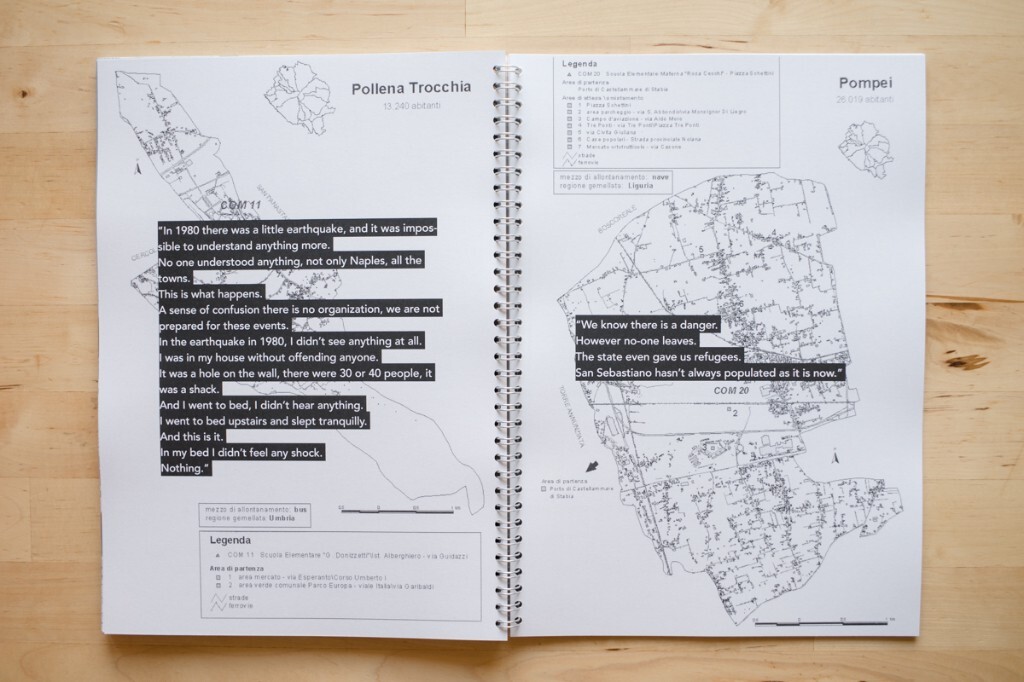 Pollena Trocchia
13.240 abitanti
COM 11
"In 1980 there was a little earthquake, and it was impos-
sible to understand anything more.
No one understood anything, not only Naples, all the
towns.
This is what happens.
A sense of confusion there is no organization, we are not
prepared for these events.
In the earthquake in 1980, I didn't see anything at all.
I was in my house without offending anyone.
It was a hole on the wall, there were 30 or 40 people, it
was a shack.
And I went to bed, I didn't hear anything.
I went to bed upstairs and slept tranquilly.
And this is it.
In my bed I didn't feel any shock.
Nothing."
mezzo di allontanamento: bus
regione gemellata: Umbria
Legenda
COM 11 Scuola Elementare "G. Donizzetti" Ist. Alberghiero - via Guidazzi
Area di partenza
1 area mercato - via Esperanto\Corso Umberto I
2 area verde comunale Parco Europa - viale Italia\via Garibaldi
strade
ferrovie
Legenda
COM 20 Scuola Elementare Materna - Piazza Schettini
Area di partenza
Porto di Castellammare di Stabia
Area di attesa
1 Piazza Schettini
2 area parcheggio - via
3 Campo d'aviazione - via Aldo Moro
4 Tre Ponti - via Tre Ponti\Piazza Tre Ponti
5 via Civita Giuliana
6 Case popolari - Strada provinciale
7 Mercato ortofrutticolo - via
strade
ferrovie
Pompei
26.019 abitanti
mezzo di allontanamento: nave
regione gemellata: Liguria
BOSCOREALE
5
4
"We know there is a danger.
However no-one leaves.
The state even gave us refugees.
San Sebastiano hasn't always populated as it is now."
COM 20
2
TORRE ANNUNZIATA
Area di partenza
Porto di Castellammare
di Stabia